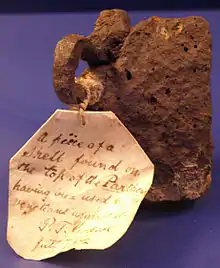 a piece of a
shell found on
the top of the Parthen
having been used
against
P. T.